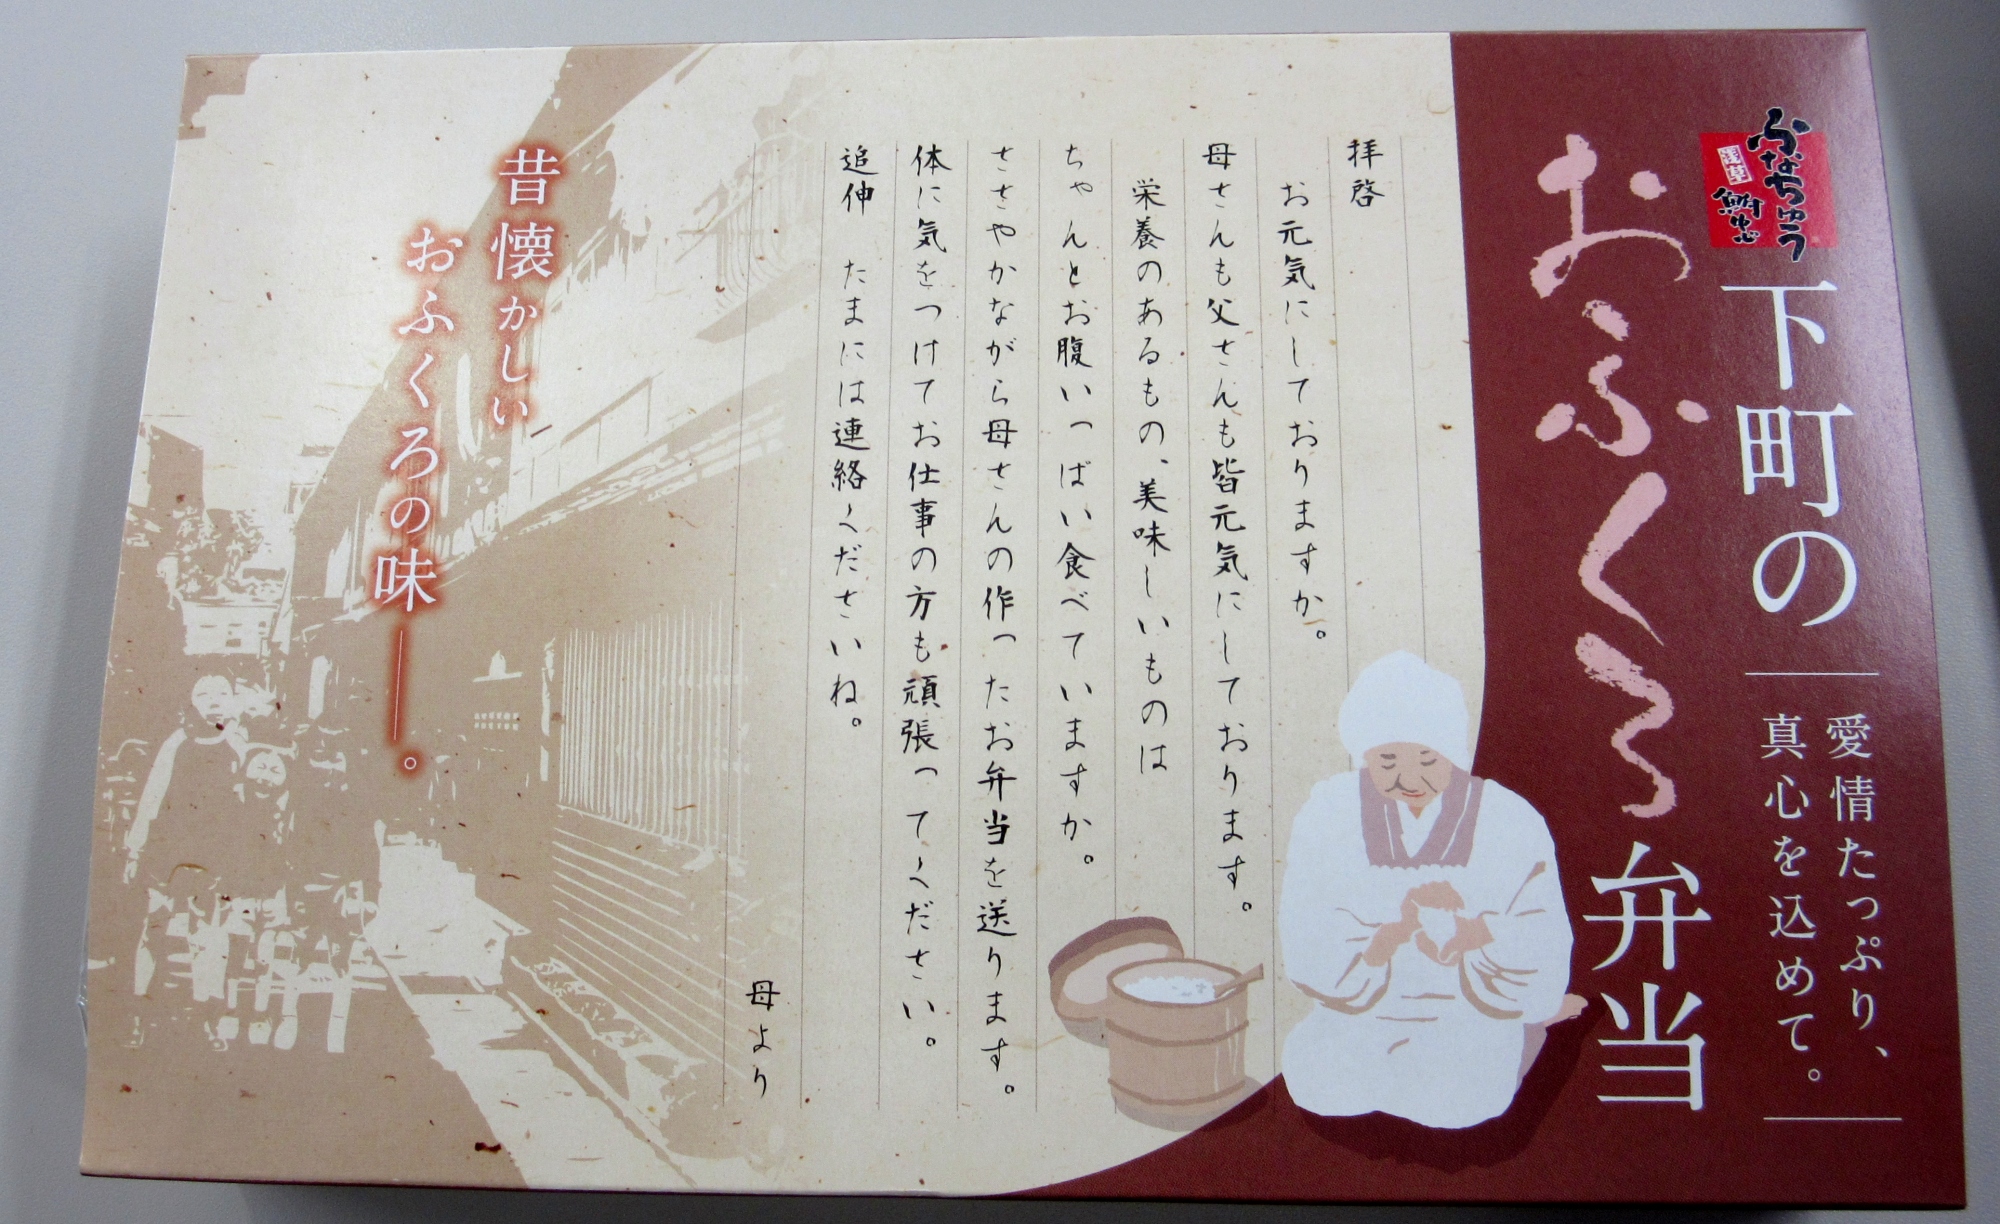 ふなちゅう
浅草
鮒忠
下町の
おふくろ弁当
愛情たっぷり、
真心を込めて。
拝啓
お元気にしておりますか。
母さんも父さんも皆元気にしております。
栄養のあるもの、美味しいものは
ちゃんとお腹いっぱい食べていますか。
ささやかながら母さんの作ったお弁当を送ります。
体に気をつけてお仕事の方も頑張ってください。
追伸　たまには連絡くださいね。
母より
昔懐かしい
おふくろの味――。